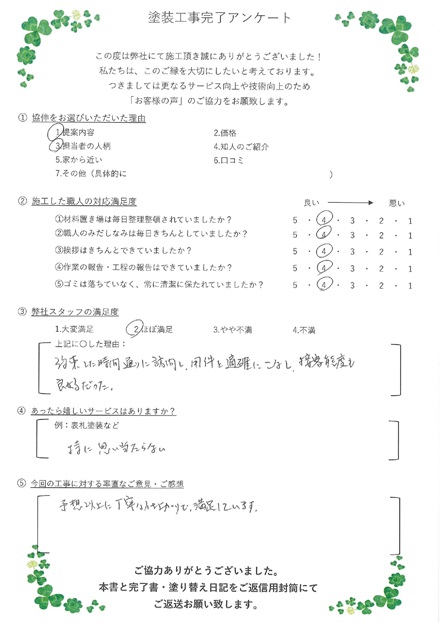 塗装工事完了アンケート
この度は弊社にて施工頂き誠にありがとうございました！
私たちは、このご縁を大切にしたいと考えております。
つきましては更なるサービス向上や技術向上のため
「お客様の声」のご協力をお願致します。
① 協伸をお選びいただいた理由
1.提案内容 2.価格
3.担当者の人柄 4.知人のご紹介
5.家から近い 6.口コミ
7.その他（具体的に ）
② 施工した職人の対応満足度 良い 悪い
①材料置き場は毎日整理整頓されていましたか？ 5 ・ 4 ・ 3 ・ 2 ・ 1
②職人のみだしなみは毎日きちんとしていましたか？ 5 ・ 4 ・ 3 ・ 2 ・ 1
③挨拶はきちんとできていましたか？ 5 ・ 4 ・ 3 ・ 2 ・ 1
④作業の報告・工程の報告はできていましたか？ 5 ・ 4 ・ 3 ・ 2 ・ 1
⑤ゴミは落ちていなく、常に清潔に保たれていましたか？ 5 ・ 4 ・ 3 ・ 2 ・ 1
③ 弊社スタッフの満足度
1.大変満足 2.ほぼ満足 3.やや不満 4,不満
上記に〇した理由：
約束した時間通りに訪問し、用件を適確にこなし、接客態度も
良好だった。
④ あったら嬉しいサービスはありますか？
例：表札塗装など
特に思い当たらない
⑤ 今回の工事に対する率直なご意見・ご感想
予想以上に丁寧な仕上がりで、満足しています。
ご協力ありがとうございました。
本書と完了書・塗り替え日記をご返信用封筒にて
ご返送お願い致します。